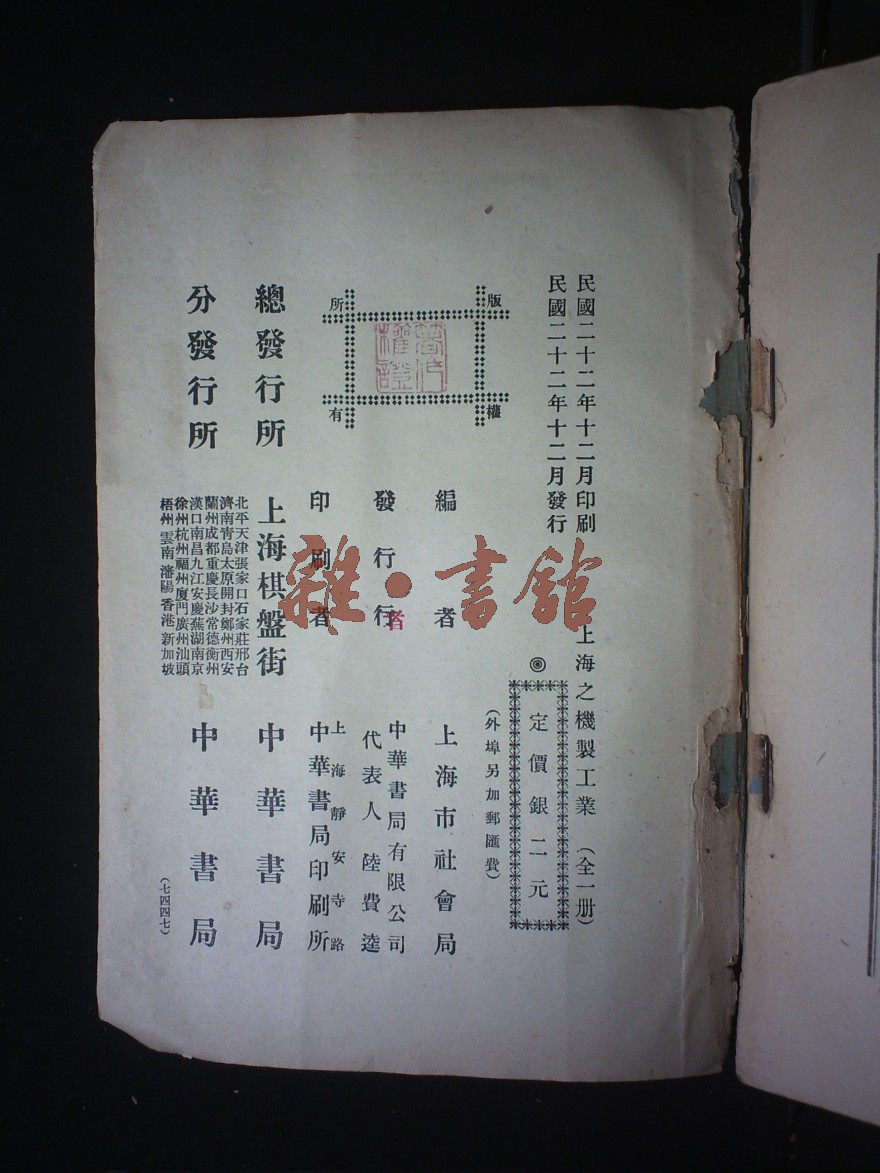 民國二十二年十二月印刷
民國二十二年十二月發行
上海之機製工業（全一册）
◎
定價銀二元
（外埠另加郵匯費）
版權所有
編者
上海市社會局
發行行
者
中華書局有限公司
代表人陸費逵
印刷者
上海靜安寺路
中華書局印刷所
總發行所
上海棋盤街
中華書局
分發行所
北平天津張家口石家莊邢台
濟南青島太原開封鄭州西安
蘭州成都重慶長沙常德衡州
漢口南昌九江安慶蕪湖南京
徐州杭州福州廈門廣州汕頭
梧州雲南瀋陽香港新加坡
中華書局
（七四四七）
雜·書館